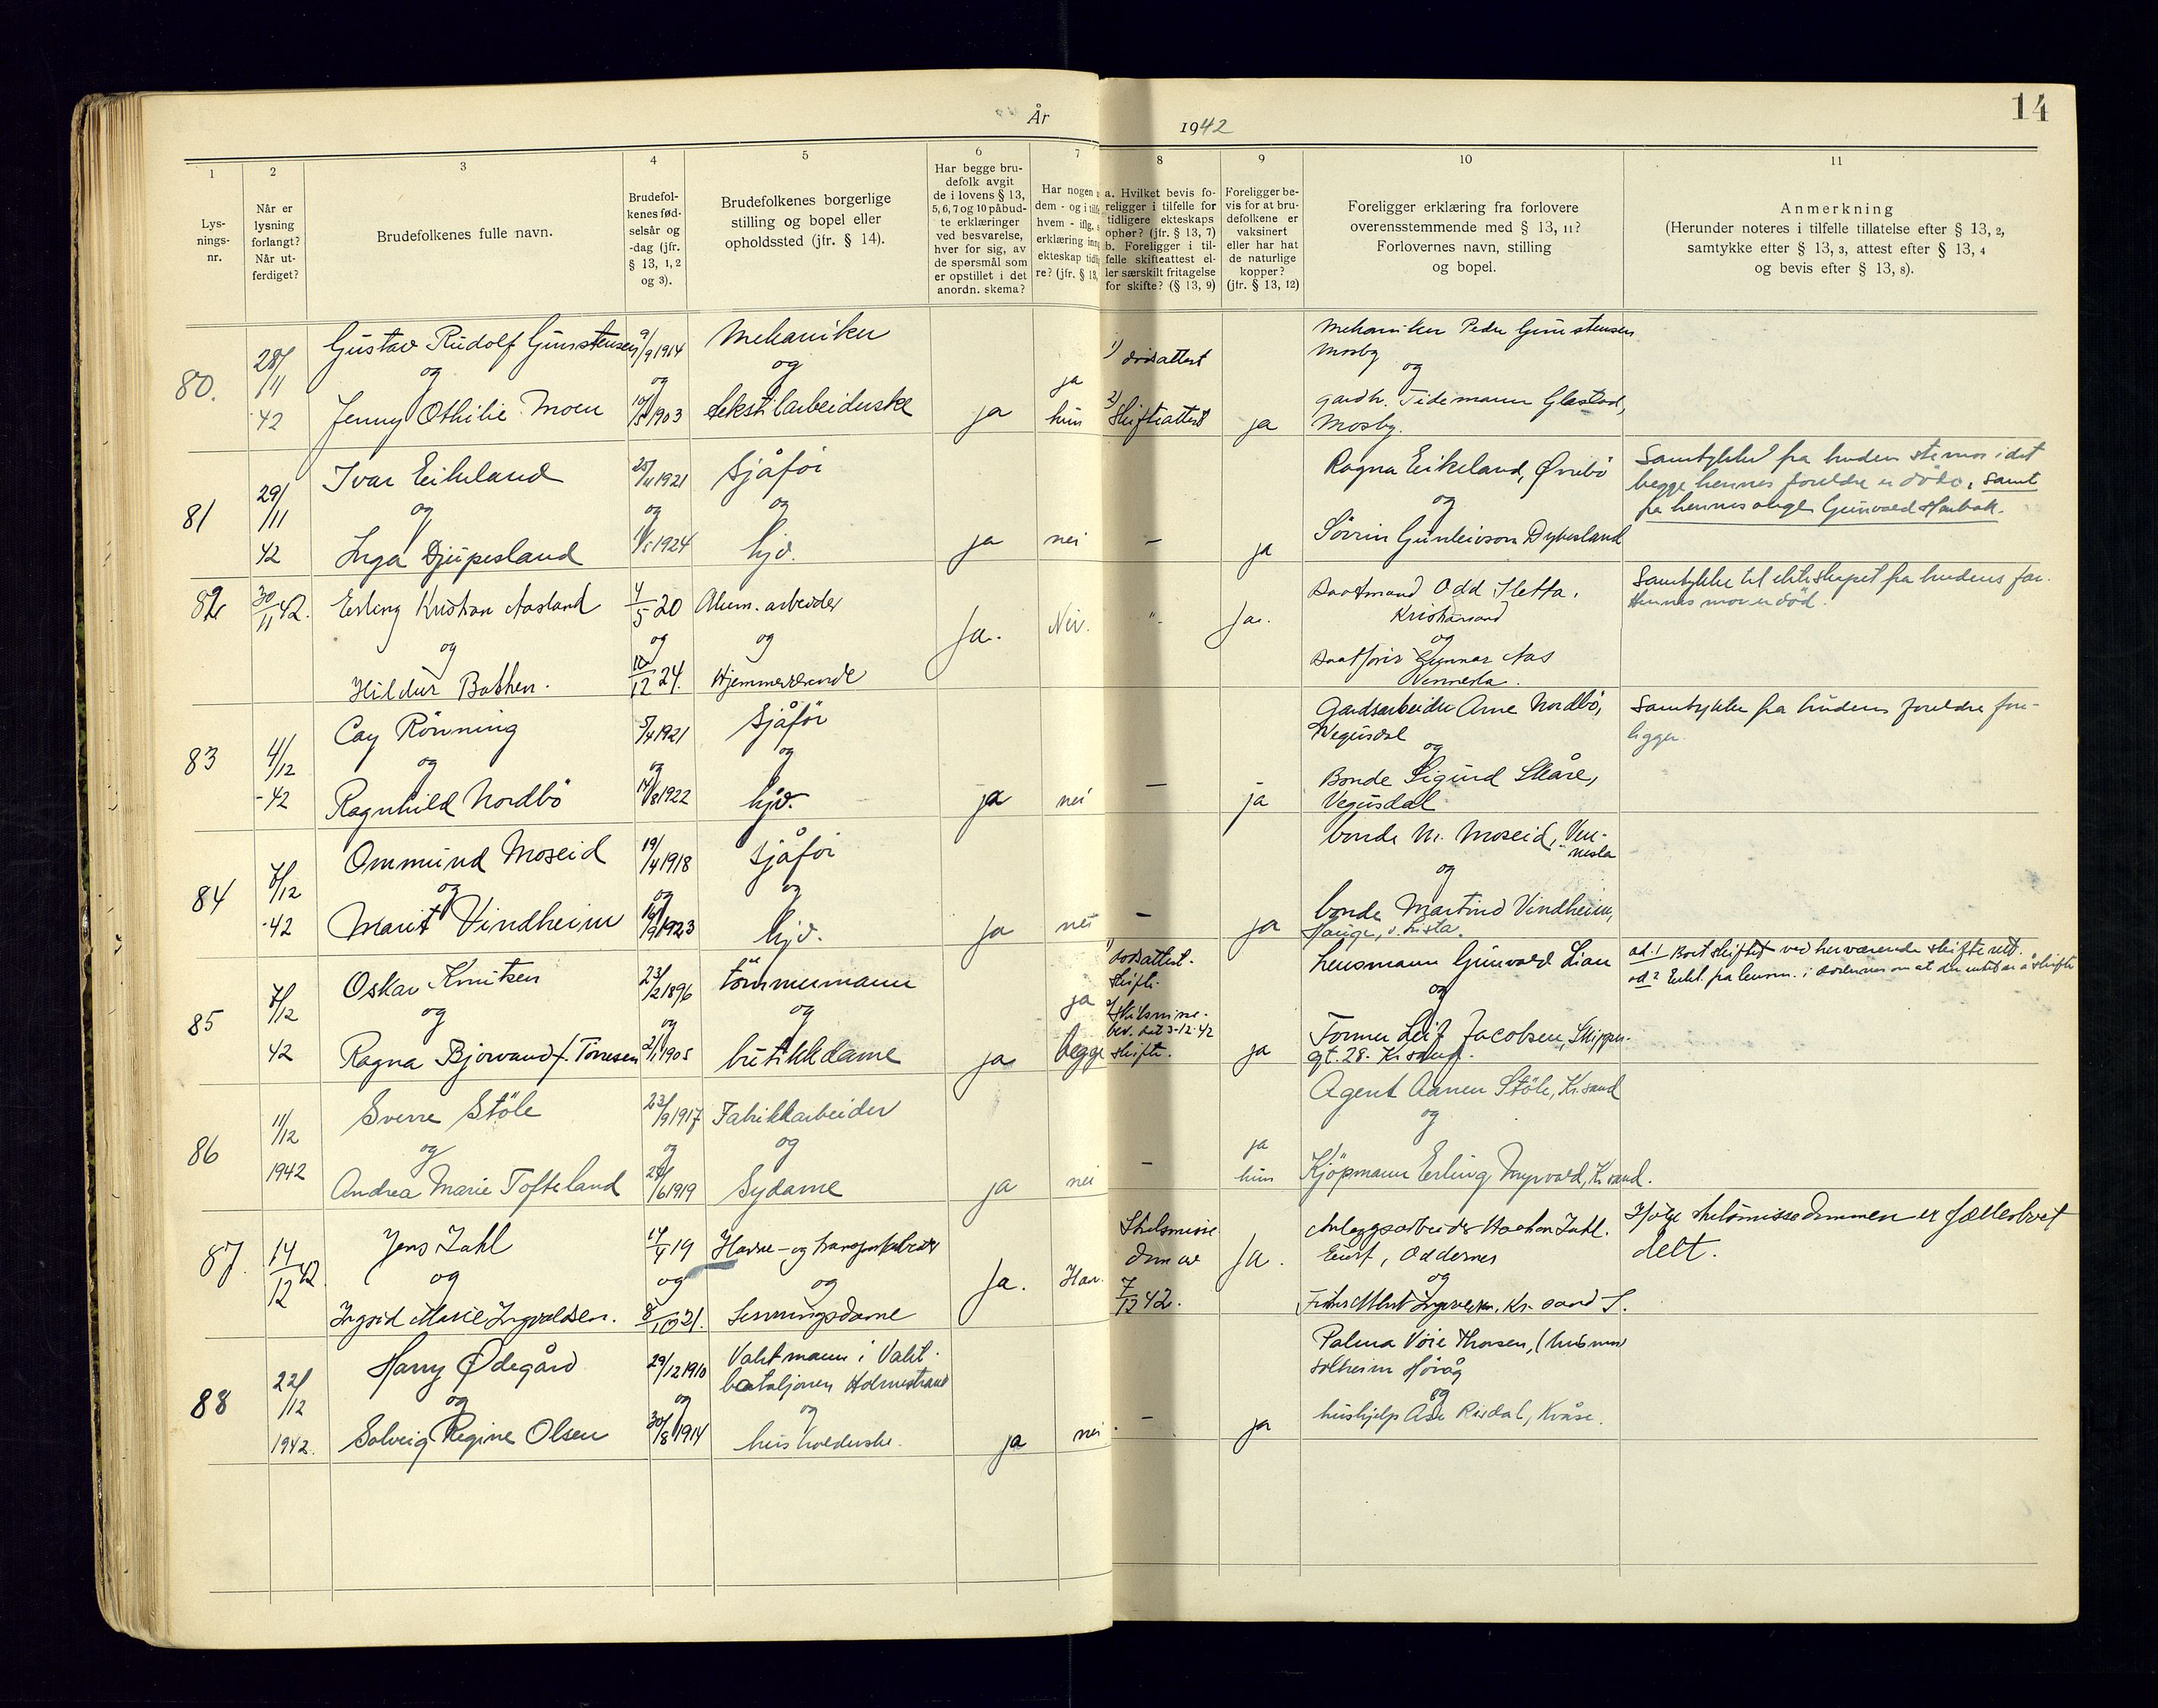 År 1942
14
1 2 3 4 5 6 7 8 9 10 11
Lys-
nings-
nr.
Når er
lysning
forlangt?
Når ut-
ferdiget?
Brudefolkenes fulle navn.
Brudefol-
kenes fød-
selsår og
-dag (jfr.
§ 13, 1, 2
og 3).
Brudefolkenes borgerlige
stilling og bopel eller
opholdssted (jfr. § 14).
Har begge bru-
defolk avgit
de i lovens § 13,
5, 6, 7 og 10 påbud-
te erklæringer
ved besvarelse,
hver for sig, av
de spørsmål som
er opstillet i det
anordn. skema?
Har nogen
dem - og i
hvem - iflg.
erklæring
ekteskap
re? (jfr. § 13,
a. Hvilket bevis fo-
religger i tilfelle for
tidligere ekteskaps
ophør? (jfr. § 13, 7)
b. Foreligger i til-
felle skifteattest el-
ler særskilt fritagelse
for skifte? (§ 13, 9)
Foreligger be-
vis for at bru-
defolkene er
vaksinert
eller har hat
de naturlige
kopper?
(jfr. § 13, 12)
Foreligger erklæring fra forlovere
overensstemmende med § 13, 11?
Forlovernes navn, stilling
og bopel.
Anmerkning
(Herunder noteres i tilfelle tillatelse efter § 13, 2,
samtykke efter § 13, 3, attest efter § 13, 4
og bevis efter § 13, 8).
80.
28/11
42
Gustav Rudolf Gunstensen
og
Jenny Othilie Moen
9/9 1914
og
1903
Mekaniker
og
tekstilarbeiderske
ja
ja
hun
1) dødsattest
2) Skifteattest
ja
Mekaniker Peder Gunstensen
Mosby
og
gardbr. Tidemann Glastad,
Mosby.
81
29/11
42
Ivar Eikeland
og
Inga Djupesland
1921
og
1924
Sjåfør
og
hjv.
ja
nei
-
ja
Ragna Eikeland, Øvrebö
og
Sövrin Gunleivson Dybesland
Samtykke fra brudens stemor idet
begge hennes foreldre er döde, samt
fra hennes verge Gunvald
82
30/11 42.
Erling Kristian Aasland
og
Hildur Bakken.
4/5 20
og
12 24.
Alum. arbeider
og
Hjemmeværende
Ja.
Nei.
"
Ja.
Odd Sletta.
Kristiansand
og
Gunnar Aas
Vennesla.
Samtykke til ekteskapet fra brudens far.
Hennes mor er död.
83
4/12
-42
Cay Rönning
og
Ragnhild Nordbö
5/4 1921
og
14/8 1922
Sjåför
og
hjv.
ja
nei
-
ja
Gardsarbeider Arne Nordbö,
Vegusdal
og
Bonde Sigurd Skåre,
Vegusdal
Samtykke fra brudens foreldre fore-
ligger.
84
7/12
-42
Ommund Moseid
og
Marit Vindheim
19/4 1918
og
16/9 1923
Sjåför
og
hjv.
ja
nei
-
ja
bonde M. Moseid, Ven-
nesla
og
bonde Martind Vindheim,
Hauge, v. Lista.
85
7/12
42
Oskar Knutsen
og
Ragna Bjorvand f. Tönesen
23/2 1896
og
2/1 1905
tömmermann
og
butikkdame
ja
ja
begge
1) dödsattest.
skifte.
2) Skilsmisse-
bev. dat 3-12-42
skifte.
ja
Lensmann Gunvald Lian
og
Former Leif Jacobsen, Skipper-
gt. 28. Kr.sand.
ad. 1 Boet skiftet ved herværende skifterett.
ad. 2 Erkl. fra lensm. i Oddernes om at der intet er å skifte
86
11/12
1942
Sverre Stöle
og
Andrea Marie Tofteland
23/9 1917
og
1919
Fabrikkarbeider
og
Sydame
ja
nei
-
ja
hun
Agent Aanen Stöle, Kr.sand
og
Kjöpmann Erling Myrvold, Kr.sand.
87.
14/12 42
Jens Zahl
og
Ingrid Marie Ingvaldsen.
19
og
8/10 21.
Havne- og transportarbeider
og
Serveringsdame
Ja.
Har.
Skilsmisse
dom av
7/12 42.
Ja.
Anleggsarbeider Haakon Zahl.
Oddernes
og
Ingvaldsen, Kr. sand S.
Ifölge skilsmissedommen er fælleboet
delt.
88
22/12
1942.
Harry Ødegård
og
Solveig Regine Olsen
29/12 1910
og
30/8 1914
Vaktmann i Vakt-
bataljonen Holmestrand
og
husholderske.
ja
nei
-
ja
Palma Vöie Thorsen,
Solheim Hövåg
og
hushjelp Åse Risdal, Kvåse.